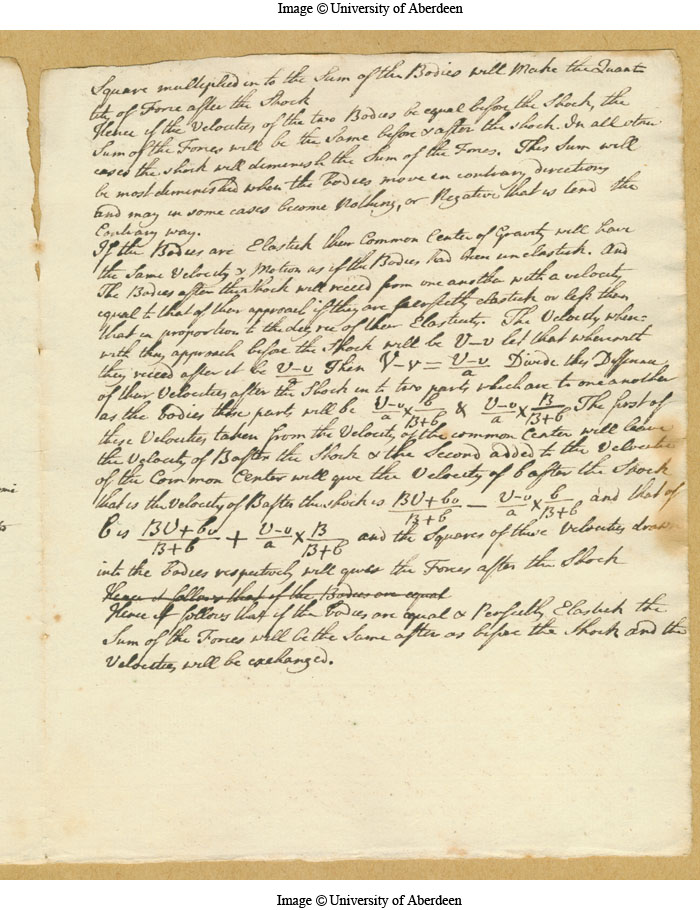 Image © University of Aberdeen
Square multiplied into the Sum of the Bodies will Make the Quant
tity of Force after the Shock
Hence if the Velocities of the two Bodies be equal before the Shock, the
Sum of the Forces will be the Same before & after the shock. In all other
cases the shock will diminish the Sum of the Forces. This Sum will
be most diminished when the bodies move in contrary directions
and may in some cases become Nothing, or Negative that is tend the
Contrary way.
If the Bodies are Elastick their Common Center of Gravity will have
the Same Velocity & Motion as if the Bodies had been unelastick. And
The Bodies after the Shock will receed from one another with a velocity
equal to that of their approach if they are perfectly elastick or less then
that in proportion to the degree of their Elasticity. The Velocity where=
with they approach before the Shock will be V-v let that wherewith
they receed after it be V-v/a Then V-v = V-v/a Divide this Difference
of their Velocities after the Shock in to two parts which are to one another
as the bodies these parts will be V-v/a × b/B+b & V-v/a × B/B+b The first of
these Velocities taken from the Velocity of the common Center will leave
the Velocity of B after the Shock & the Second added to the Velocitie
of the Common Center will give the Velocity of b after the Shock
that is the Velocity of B after the shock is BV+bv/B+b - V-v/a × b/B+b and that of
b is BV+bv/B+b + V-v/a × B/B+b and the Squares of these Velocities drawn
into the bodies respectively will give the Forces after the Shock
Hence it follows that if the Bodies are equal
Hence it follows that if the bodies are equal & Perfectly Elastick the
Sum of the Forces will be the Same after as before the Shock and the
Velocities will be exchanged.
Image © University of Aberdeen